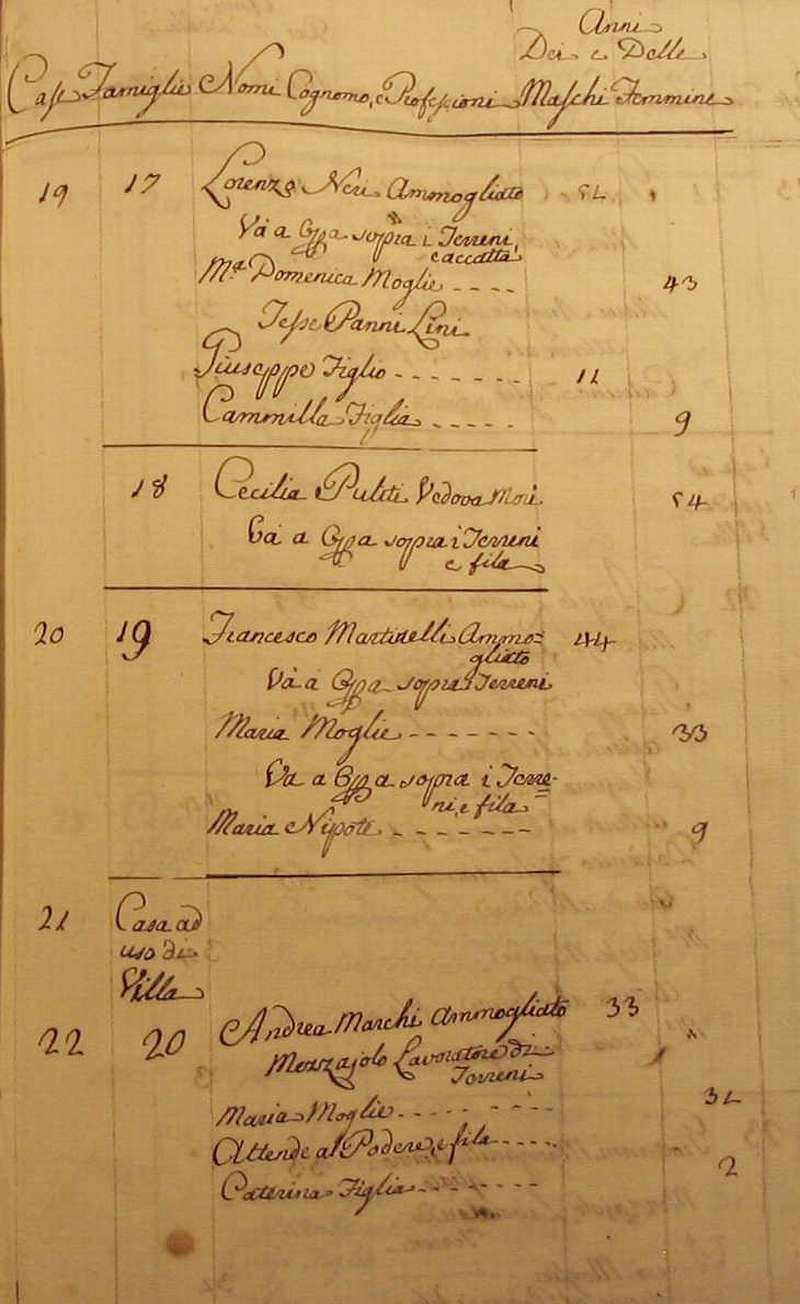 Anni
Dei e Delle
Case Famiglie Nomi Cognome, e Professioni Maschi Femmine
19 17 Lorenzo Neri Ammogliato 52
Và a Opa sopra i Terreni,
e accatta
M.a Domenica Moglie - - - - 43
Tesse Panni Lini
Giuseppe Figlio - - - - - - - 12
Cammilla Figlia - - - - - 9
18 Cecilia Puliti Vedova 54
Và a Opa sopra i Terreni
e fila
20 19 Francesco Martinelli Ammo=
gliato 44
Và a Opa sopra i Terreni
Maria Moglie - - - - - - - 33
Và a Opa sopra i Terre=
ni, e fila
Maria Nipote - - - - - - - 9
21 Casa ad
uso di
Villa
22 20 Andrea Marchi Ammogliato 33
Mezzajolo Lavoratore di
Terreni
Maria Moglie - - - - - - - 32
Attende al Podere, e fila - - - - -
Caterina Figlia - - - - - - - 2